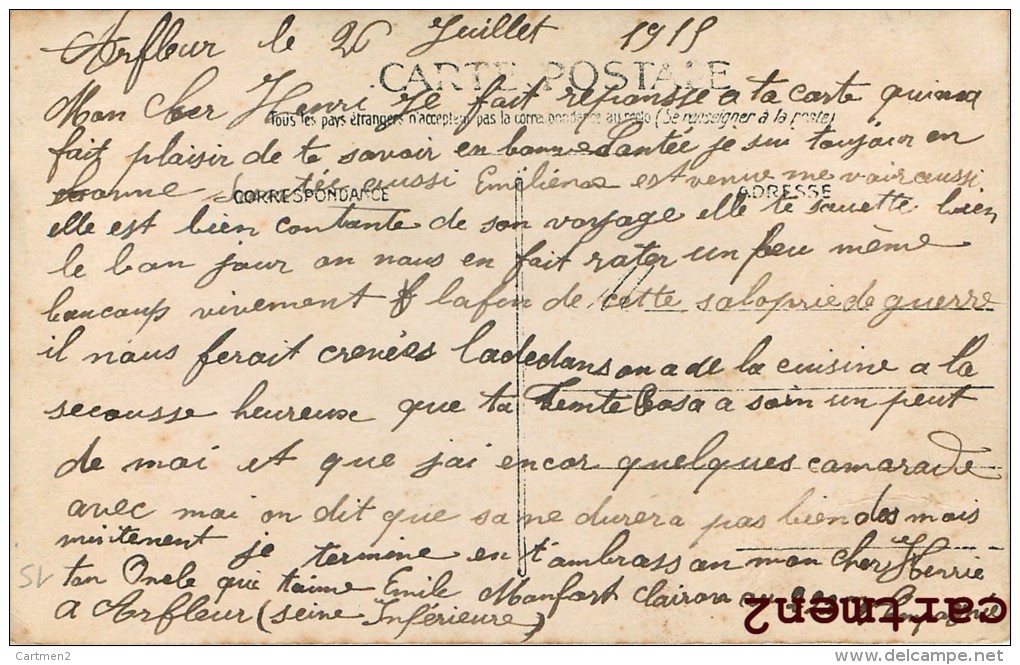 Arfleur le 26 Juillet 1915
CARTE POSTALE
Mon cher Henri je fait reponsse a ta carte qui ma
Tous les pays étrangers n'acceptent pas la correspondance au recto (Se renseigner à la poste)
fait plaisir de te savoir en bonne Santée je sui toujour en
bonne santée aussi Emélienne est venue me voir aussi
CORRESPONDANCE ADRESSE
elle est bien contante de son voyage elle te souette bien
le bon jour on nous en fait rater un peu même
baucoup vivement la fin de cette saloprie de guerre
il nous ferait crevées ladedans on a de la cuisine a la
secousse heureux que ta Temte Rosa a soin un peut
de moi et que jai encor quelques camarade
avec moi on dit que sa ne durera pas bien dos mois
mintenent je termine en t'ambrassan mon cher Henrie
ton Oncle qui t'aime Emile Monfort clairon au Compagnie
a Arfleur (seine Inférieure)
51
cartmen2
Cartmen2
delcampe.net